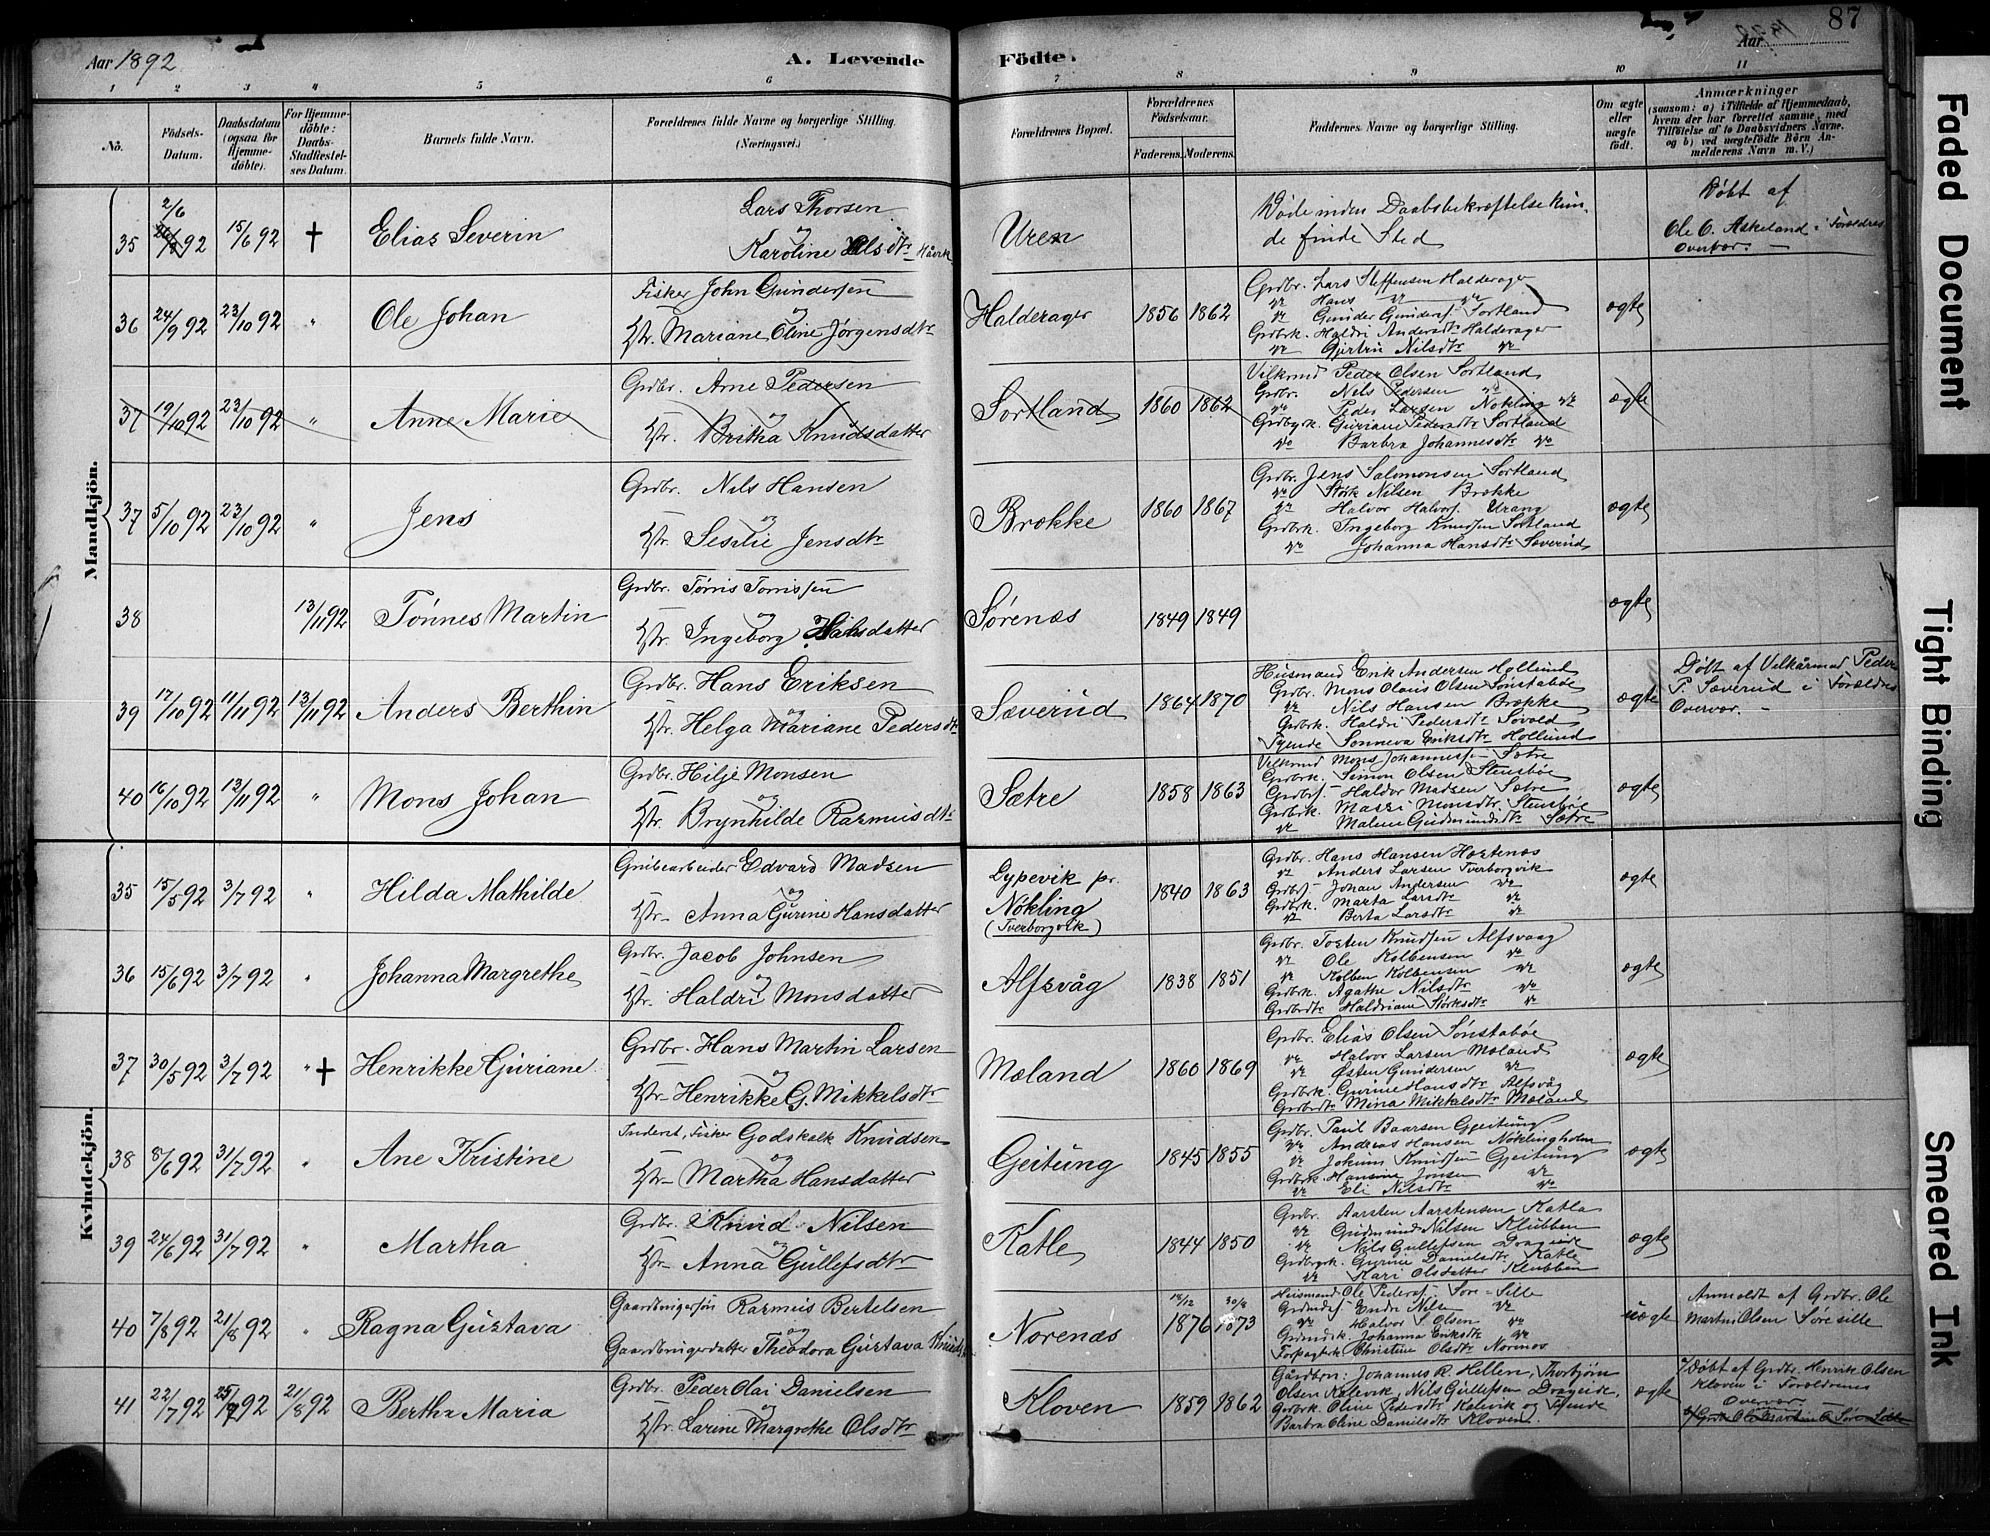 87
Aar 1892
A. Levende Födte.
Aar
1 2 3 4 5 6 7 8 9 10 11
No.
Födsels-Datum.
Daabsdatum (ogsaa for Hjemmedöbte).
For Hjemmedöbte: Daabs-Stadfæstelses Datum.
Barnets fulde Navn.
Forældrenes fulde Navne og borgerlige Stilling. (Næringsvei.)
Forældrenes Bopæl.
Forældrenes Födselsaar.
Faderens. Moderens.
Faddernes Navne og borgerlige Stilling.
Om ægte eller uægte födt.
Anmærkninger
(saasom: a) i Tilfælde af Hjemmedaab, hvem der har forrettet samme, med Tilföielse af to Daabsvidners Navne, og b) ved uægtefödte Börn Anmelderens Navn m. V.)
Mandkjön.
35 2/6 92 15/6 92 † Elias Severin
Lars Thorsen
og
Karoline Olsdtr
Uren
Døde inden Daabsbekræftelse kun-
de finde Sted
Døbt af
Ole O. Askeland i Forældres
Overvær. —
36 24/9 92 23/10 92 " Ole Johan
Fisker John Gundersen
og
Hstr. Mariane Oline Jørgensdtr
Halderager 1856 1862
Grdbr. Lars Steffensen Halderager
do Hans do do
do Gunder Gunders. Sortland
Grdbrk. Haldri Andersdtr Halderager
do Gjertru Nilsdtr do
ægte
37 19/10 92 23/10 92 " Anne Marie
Grdbr. Arne Pedersen
og
Hstr. Britha Knudsdatter
Sortland 1860 1862
Vilkrmd Peder Olsen Sortland
Grdbr. Nels Pedersen do
do Peder Larsen Nökling do
Grdbrk. Guriane Pedersdtr Sortland
do Barbra Johannesdtr do
ægte
37 5/10 92 23/10 92 " Jens
Grdbr. Nils Hansen
og
Hstr. Sesilie Jensdtr
Brække 1860 1867
Grdbr. Jens Salomonsen Sortland
do Störk Nilsen Brække
do Halvor Halvors. Urang
Grdbrk. Ingeborg Knudsen Sortland
do Johanna Hansdtr Sæverud
ægte
38 13/11 92 Tönnes Martin
Grdbr. Törris Torrissen
og
Hstr. Ingeborg Hansdatter
Sørenæs 1849 1849
ægte
39 17/10 92 11/11 92 13/11 92 Anders Berthin
Grdbr. Hans Eriksen
og
Hstr. Helga Mariane Pedersdtr
Sæverud 1864 1870
Husmand Erik Andersen Hollund
Grdbr. Mons Olaus Olsen Sønstabøe
do Nils Hansen Brække
Grdbrk. Haldri Pedersdtr Søvold
Tjende Sonneva Eriksdtr Hollund
ægte
Døbt af Vilkårmd Peder
P. Sæverud i Forældres
Overvær. —
40 16/10 92 13/11 92 " Mons Johan
Grdbr. Hilje Monsen
og
Hstr. Brynhilde Rasmusdtr
Sætre 1858 1863
Vilkrmd Mons Johanness. Sætre
Grdbrk. Simon Olsen Stensbøe
Grdbrs. Haldor Madsen Sætre
Grdbrk. Massi Monsdtr. Stensbøe
do Malene Gudmundsdtr Sætre
ægte
Kvindekjön.
35 15/5 92 3/7 92 " Hilda Mathilde
Grubearbeider Edvard Madsen
og
Hstr. Anna Gurine Hansdatter
Dypevik pr.
Nökling
(Tverborgvik)
1840 1863
Grdbr. Hans Hansen Hestenæs
do Anders Larsen Tverborgvik
Grdbrs. Johan Andersen do
Grdbrk. Marta Larsdtr do
do Berta Larsdtr do
ægte
36 15/6 92 3/7 92 " Johanna Margrethe
Grdbr. Jacob Johnsen
og
Hstr. Haldri Monsdatter
Alfsvåg 1838 1851
Grdbr. Tosten Knudsen Alfsvaag
do Ole Kolbensen do
do Kolben Kolbensen do
Grdbrk. Agathe Nilsdtr do
Grdbrdtr Haldriane Störksdtr do
ægte
37 30/5 92 3/7 92 " † Henrikke Guriane
Grdbr. Hans Martin Larsen
og
Hstr. Henrikke G. Mikkelsdtr
Mæland 1860 1869
Grdbr. Elias Olsen Sønstabøe
do Halvor Larsen Mæland
do Østen Gundersen do
Grdbrk. Gurine Hansdtr Alfsvåg
Grdbrdtr Mina Mikkelsdtr Mæland
ægte
38 8/6 92 31/7 92 " Ane Kristine
Inderst, Fisker Godskalk Knudsen
og
Hstr. Martha Hansdatter
Geitung 1845 1855
Grdbr. Paul Baarsen Gjeitung
do Andreas Hansen Nøklingholm
do Jokum Knudsen Gjeitung
Grdbrk. Hansine Jonsen do
do Eli Nilsdtr do
ægte
39 24/6 92 31/7 92 " Martha
Grdbr. Knud Nilsen
og
Hstr. Anna Gullefsdtr
Katle 1844 1850
Grdbr. Aarsten Aarstensen Katla
do Gudmund Nilsen Klubben
do Nils Gullefsen Drageide
Grdbrk. Gurine Danielsdtr Katle
do Kari Olsdatter Klubben
ægte
40 7/8 92 21/8 92 " Ragna Gustava
Gaardbrugersøn Rasmus Bertelsen
og
Gaardbrugerdatter Theodora Gustava
Norenæs 1876 1873
Husmand Ole Peders. Søre-Sille
Endre Nilsen do
do Halvor Olsen do
Johanna Eriksdtr do
Christine Olsdtr Norenes
uægte
Anmeldt af Grdbr. Ole
Martin Olsen Søresille
41 22/7 92 25/7 92 21/8 92 Bertha Maria
Grdbr. Peder Olai Danielsen
og
Hstr. Larine Margrethe Olsdtr
Kloven 1859 1862
Gårdbrn: Johannes R. Hellen, Thorbjørn
Olsen Kalevik, Nils Gullefsen Drageide,
Grdbrk. Oline Pedersdtr Kalevik og Tjende
Barbra Oline Danielsdtr Kloven.
ægte
Døbt af Grdbr. Henrik Olsen
Kloven i Forældrenes
Overvær. —
Faded Document
Tight Binding
Smeared Ink